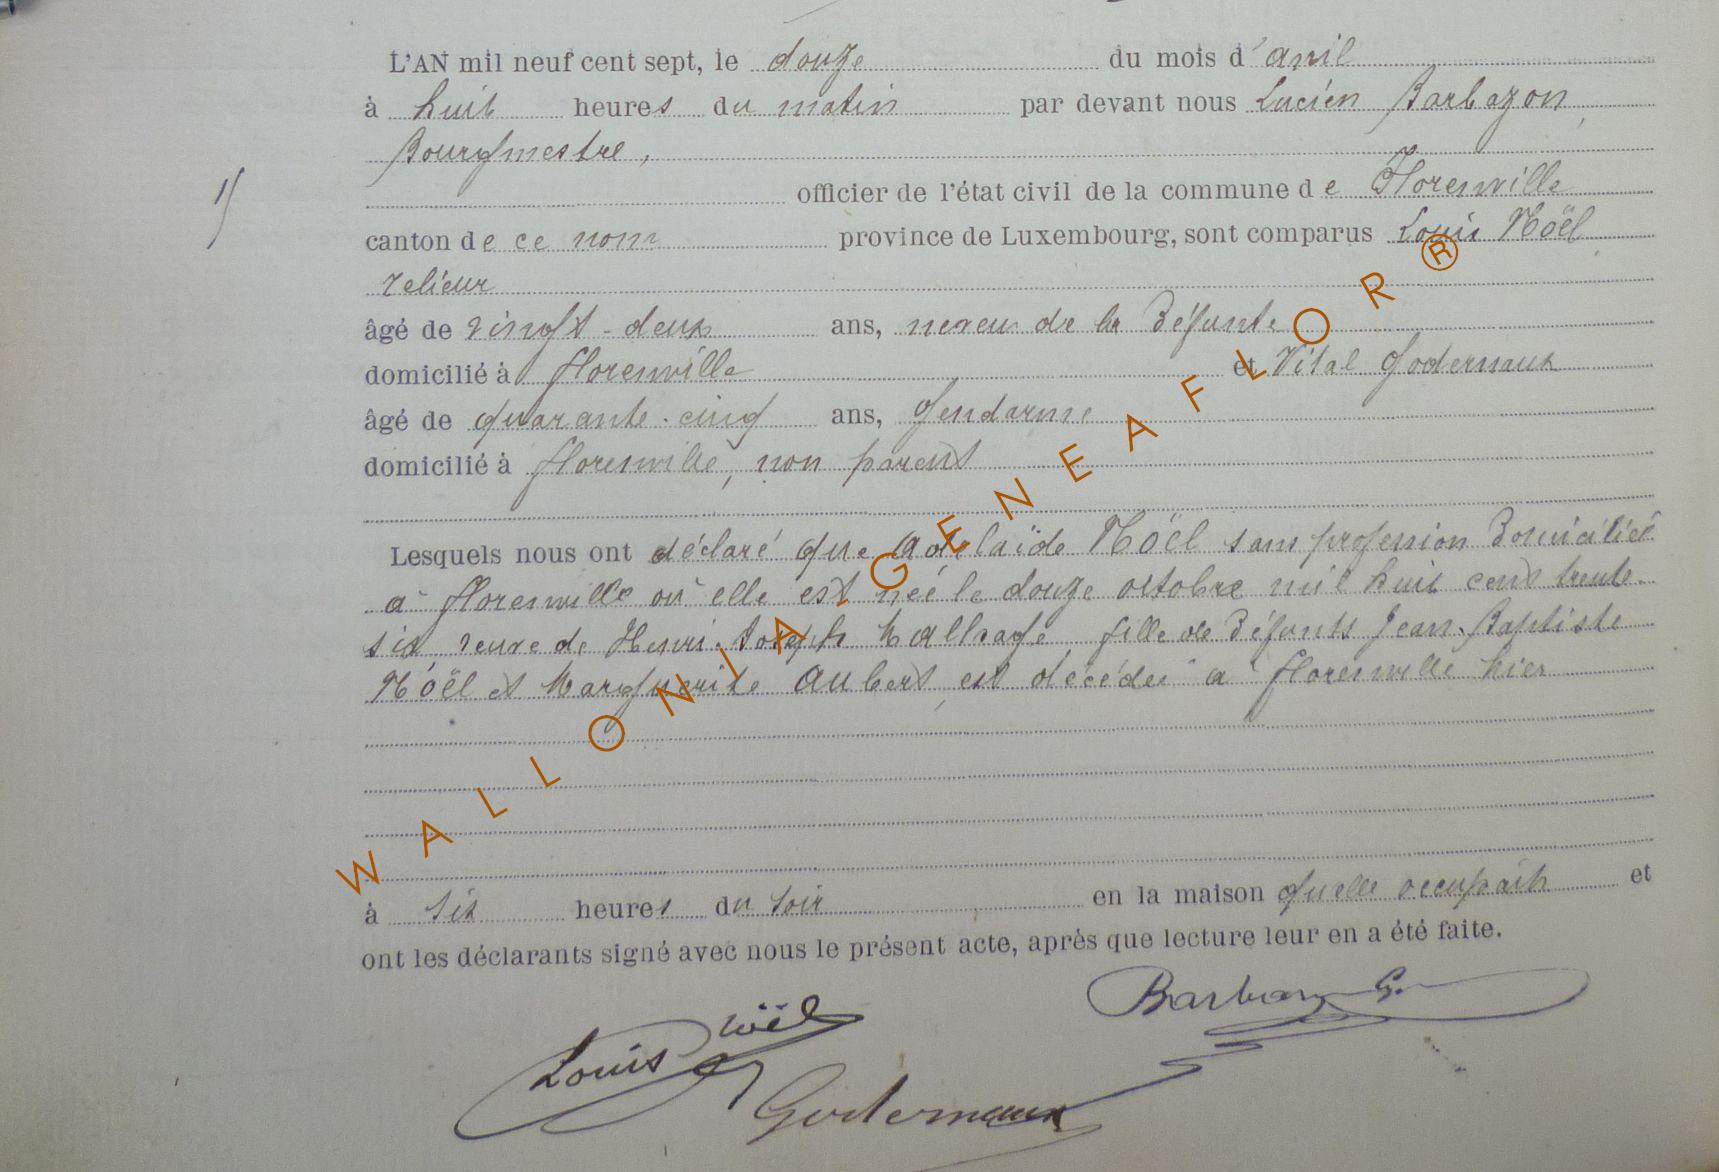 L'AN mil neuf cent sept, le douze du mois d'avril
à huit heures du matin par devant nous Lucien Barbazon,
Bourgmestre,
officier de l'état civil de la commune de Florenville
canton de ce nom province de Luxembourg, sont comparus Louis Noël
relieur
âgé de vingt-deux ans, neveu de la Défunte
domicilié à Florenville et Vital Godernaux
âgé de quarante-cinq ans, Gendarme
domicilié à Florenville, non parent
Lesquels nous ont déclaré que Adelaïde Noël sans profession Domiciliée
à Florenville où elle est née le douze octobre mil huit cent trente
six veuve de Henri-Joseph fille de Défunts Jean-Baptiste
Noël et Marguerite Aubert, est décédée à Florenville hier
à six heures du soir en la maison quelle occupait et
ont les déclarants signé avec nous le présent acte, après que lecture leur en a été faite.
Barbazon
Louis Noël
Godernaux
WALLONIA GENEAFLOR ®